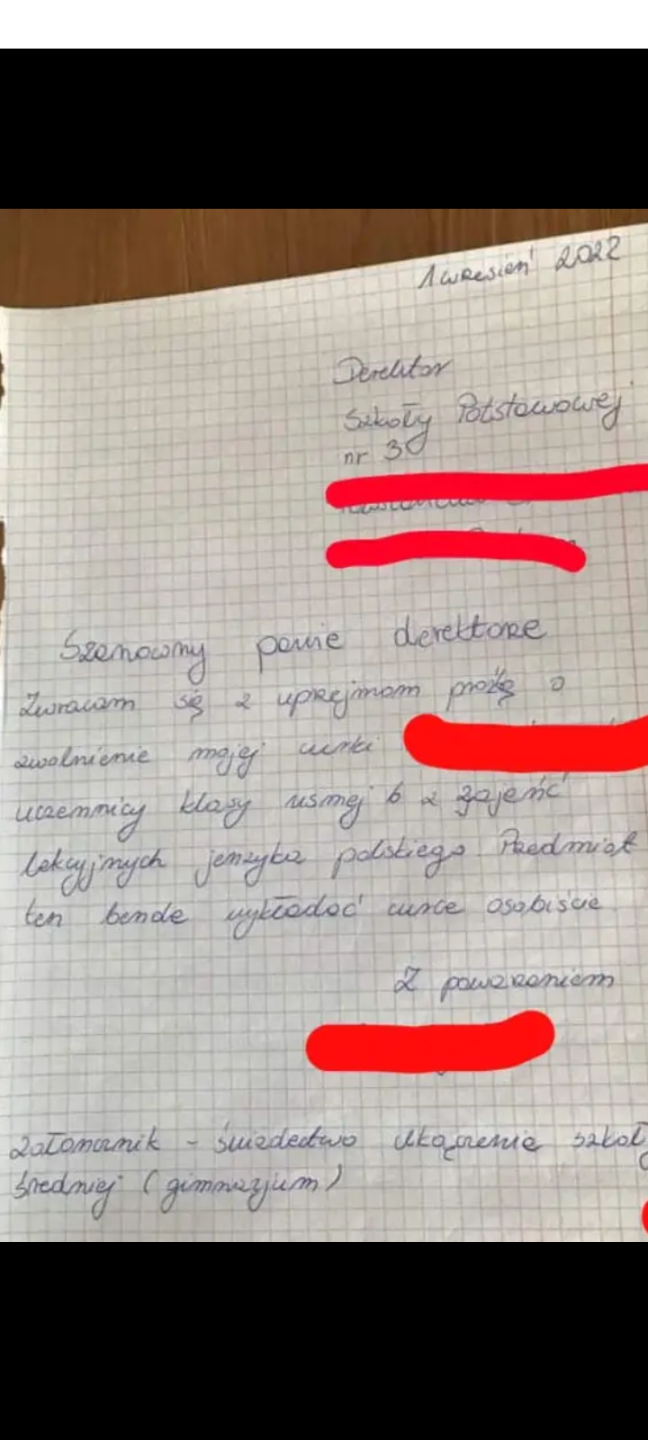 1 wresień 2022
Derektor
Szkoły Potstawowej
nr 3
Szanowny panie derektorze
Zwracam sę z uprejmom prożbę o
zwolnienie mojej curki
uczennicy klasy usmej b z zajenć
lekcyjnych jenzyka polskiego. Przedmiot
ten bende wykładać curce osobiście
Z powarzaniem
Załonarnik - świadectwo ukączenie szkoły
średniej (gimmazjum)